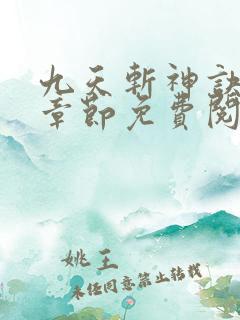 九天斬神訣
章節免費閱
姚王
未经同意禁止转载